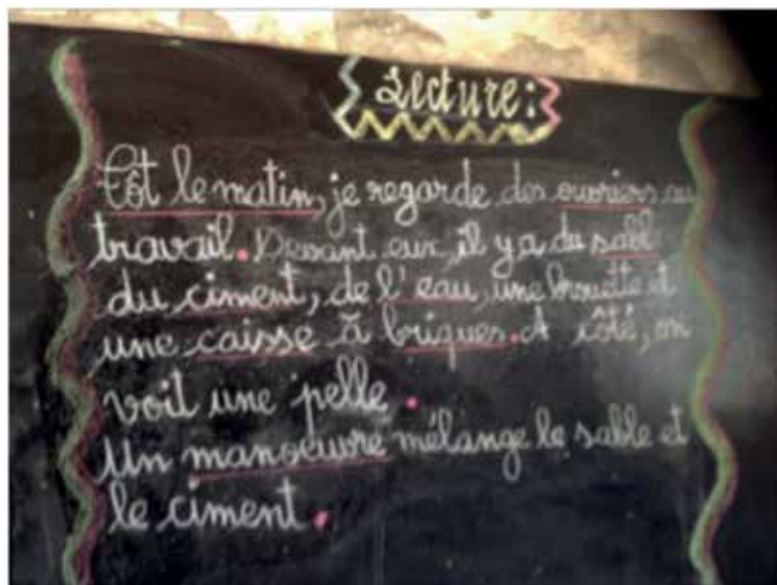 Lecture:
Tôt le matin, je regarde des ouvriers au
travail. Devant eux, il y a du sable
du ciment, de l'eau, une brouette et
une caisse à briques. A côté, on
voit une pelle.
Un manoeuvre mélange le sable et
le ciment.